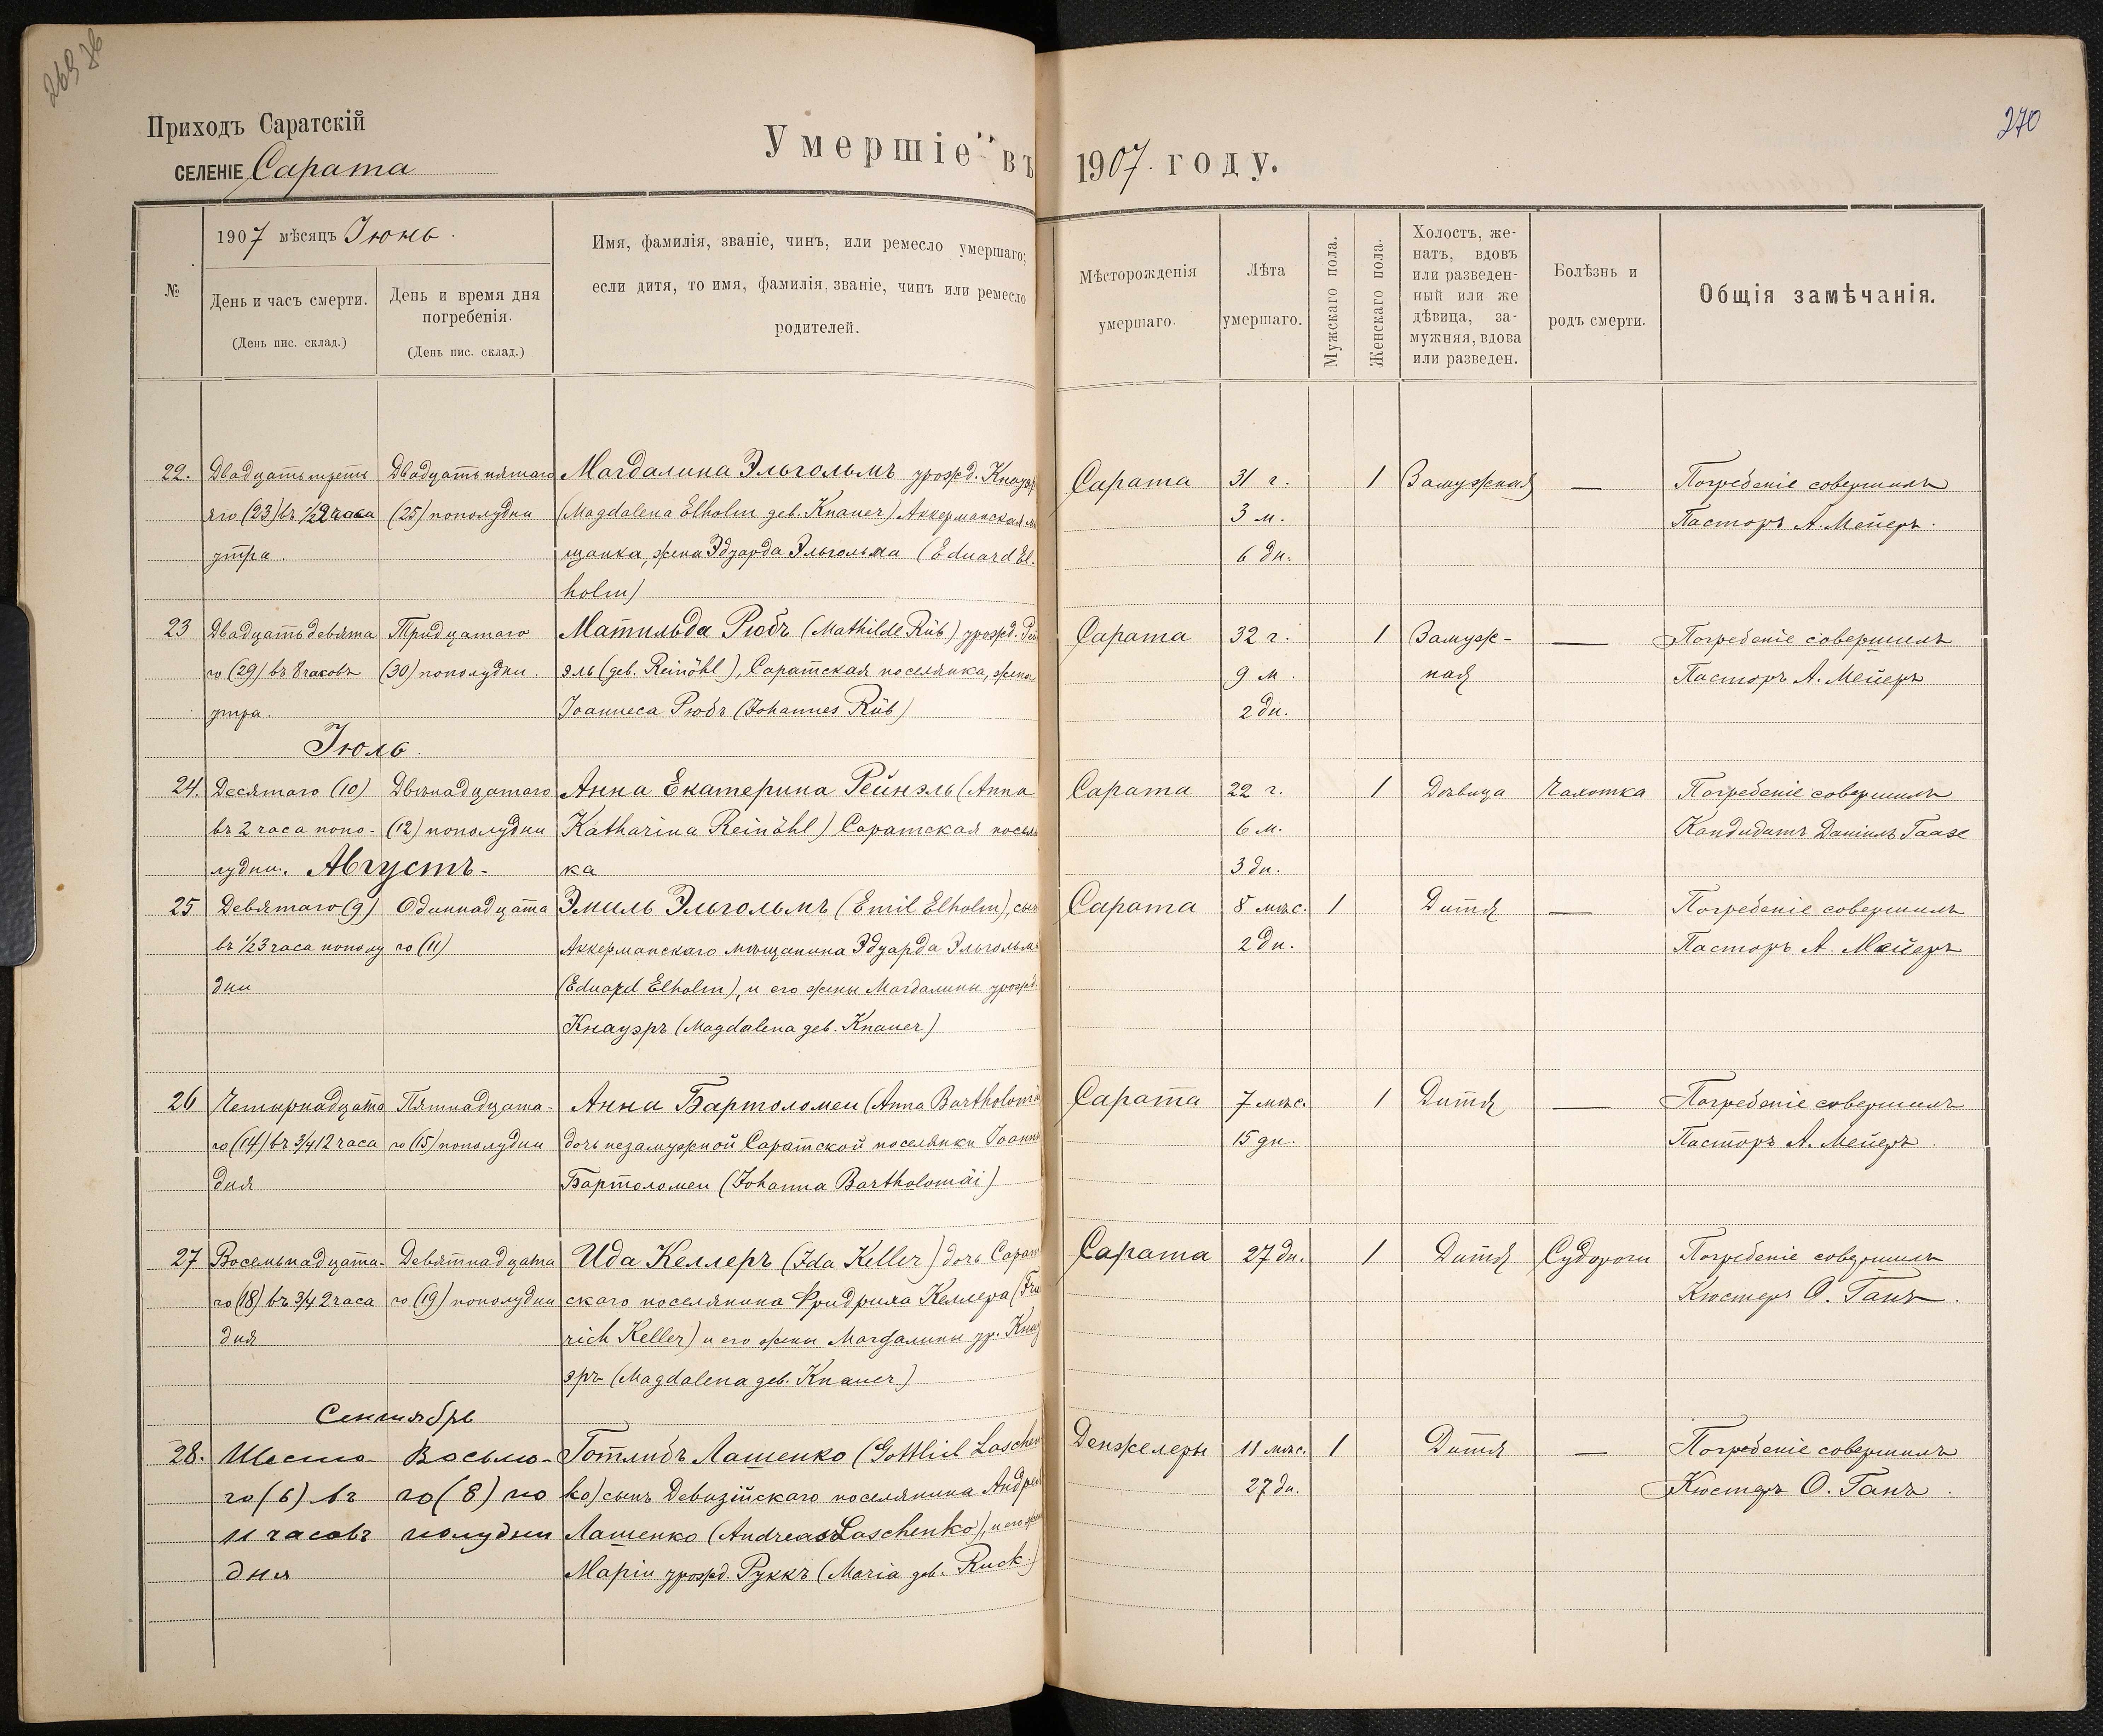 269 об
270
Приходъ Саратскій
СЕЛЕНІЕ Сарата
Умершіе въ 1907. году.
№
1907 мѣсяцъ Іюнь.
День и часъ смерти.
(День пис. склад.)
День и время дня
погребенія.
(День пис. склад.)
Имя, фамилія, званіе, чинъ, или ремесло умершаго;
если дитя, то имя, фамилія, званіе, чинъ или ремесло
родителей.
Мѣсторожденія
умершаго.
Лѣта
умершаго.
Мужскаго пола.
Женскаго пола.
Холостъ, же-
натъ, вдовъ
или разведен-
ный или же
дѣвица, за-
мужняя, вдова
или разведен.
Болѣзнь и
родъ смерти.
Общія замѣчанія.
22. Двадцать треть Двадцать пятаго Магдалина Эльгольмъ урожд. Кнауэр Сарата 31 г. 1 Замужная — Погребеніе совершилъ
яго (23) въ ½2 часа (25) пополудни (Magdalena Elholm geb. Knauer) Аккерманская мѣ 3 м. Пасторъ А. Мейеръ.
утра. щанка, жена Эдуарда Эльгольма (Eduard El- 6 дн.
holm)
23 Двадцать девята Тридцатаго Матильда Рюбъ (Mathilde Rüb) урожд. Рейн Сарата 32 г. 1 Замуж- — Погребеніе совершилъ
го (29) въ 8 часовъ (30) пополудни. эль (geb. Reinöhl), Саратская поселянка, жена 9 м. ная Пасторъ А. Мейеръ
утра. Іоаннеса Рюбъ (Johannes Rüb) 2 дн.
Іюль.
24. Десятаго (10) Двѣнадцатаго Анна Екатерина Рейнэль (Anna Сарата 22 г. 1 Дѣвица Чахотка Погребеніе совершилъ
въ 2 часа попо- (12) пополудни Katharina Reinöhl) Саратская поселя 6 м. Кандидатъ Даніилъ Гаазе
лудни. Августъ. ка 3 дн.
25 Девятаго (9) Одиннадцата Эмиль Эльгольмъ (Emil Elholm), сын Сарата 8 мѣс. 1 Дитя — Погребеніе совершилъ
въ ½3 часа пополу го (11) Аккерманскаго мѣщанина Эдуарда Эльгольма 2 дн. Пасторъ А. Мейеръ
дни (Eduard Elholm), и его жены Магдалины урожд.
Кнауэръ (Magdalena geb. Knauer)
26 Четырнадцата Пятнадцата- Анна Бартоломеи (Anna Bartholomä Сарата 7 мѣс. 1 Дитя — Погребеніе совершилъ
го (14) въ ¾12 часа го (15) пополудни дочь незамужной Саратской поселянки Іоанны 15 дн. Пасторъ А. Мейеръ.
дня Бартоломеи (Johanna Bartholomäi)
27 Восемьнадцата- Девятнадцата Ида Келлеръ (Ida Keller) дочь Сарат Сарата 27 дн. 1 Дитя Судороги Погребеніе совершилъ
го (18) въ ¾2 часа го (19) пополудни скаго поселянина Фридриха Келлера (Frie Кюстеръ О. Ганъ.
дня rich Keller) и его жены Магдалины ур. Кнау
эръ (Magdalena geb. Knauer)
Сентябрь
28. Шесто- Восьмо- Готлибъ Лашенко (Gottlieb Laschen Денжелеры 11 мѣс. 1 Дитя — Погребеніе совершилъ
го (6) въ го (8) по ko) сынъ Девизійскаго поселянина Андрея 27 дн. Кюстеръ О. Ганъ.
11 часовъ полудни Лашенко (Andreas Laschenko), и его жен
дня Маріи урожд. Руккъ (Maria geb. Ruck.)